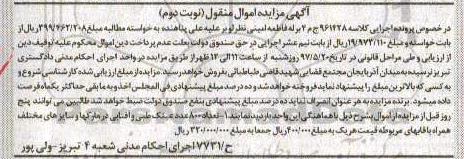 آگهی مزایده اموال منقول (نوبت دوم)
در خصوص پرونده اجرایی کلاسه ۹۶۱۴۲۸ ج م ۴ له فاطمه امینی نظر لویر علیه علی پناهنده به خواسته مطالبه مبلغ ۳۹۹/۴۶۲/۲۰۸ ریال از
بابت خواسته و مبلغ ۱۹/۹۷۳/۱۱۰ ریال از بابت نیم عشر اجرایی در حق صندوق دولت بعلت عدم پرداخت دین اموال محکوم علیه توقیف دین
از ارزیابی و طی مراحل قانونی در تاریخ ۹۷/۵/۲ روز شنبه از ساعت ۱۱ الی ۱۲ ظهر از طریق مزایده در واحد اجرای احکام مدنی دادگستری
تبریز نرسیده به میدان آذربایجان مجتمع قضایی شهید قاضی طباطبائی بفروش خواهد رسید. مزایده از مبلغ ارزیابی شده کارشناسی شروع و
به کسی که بالاترین مبلغ را پیشنهاد نماید فروخته خواهد شد و ده درصد مبلغ پیشنهادی فی المجلس اخذ و به مابقی حداکثر یکماه فرصت
داده میشود. برنده مزایده به هر عنوان انصراف نماید ده درصد مبلغ پیشنهادی بنفع صندوق دولت ضبط خواهد شد طالبین می توانند پنج
روز قبل از مزایده از اموال بشرح ذیل با هماهنگی این واحد بازدید نمایند. ۱- تعداد ۸۰۰ عدد عینک طبی و آفتابی در مارکها و سایزهای مختلف
همراه با قابهای مربوطه قیمت هر یک به مبلغ ۴۰۰/۰۰۰ ریال جمعا به مبلغ ۳۲۰/۰۰۰/۰۰۰ ریال
ح/۷۷۳۱ اجرای احکام مدنی شعبه ۴ تبریز-ولی پور